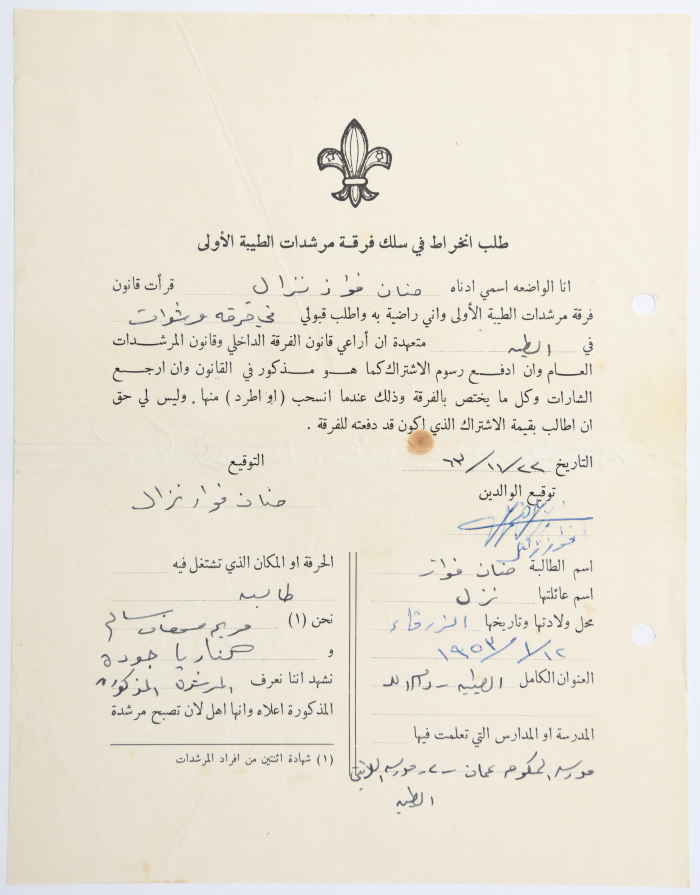 طلب انخراط في سلك فرقة مرشدات الطيبة الأولى
انا الواضعه اسمي ادناه حنان فواز نزال قرأت قانون
فرقة مرشدات الطيبة الأولى واني راضية به واطلب قبولي في فرقة مرشدات
في الطيبه متعهدة ان أراعي قانون الفرقة الداخلي وقانون المرشدات
العام وان ادفع رسوم الاشتراك كما هو مذكور في القانون وان ارجع
الشارات وكل ما يختص بالفرقة وذلك عندما انسحب (او اطرد) منها. وليس لي حق
ان اطالب بقيمة الاشتراك الذي اكون قد دفعته للفرقة.
التاريخ ٢٢/١١/٦٣
التوقيع
حنان فواز نزال
توقيع الوالدين
اسم الطالبة حنان فواز
اسم عائلتها نزل
محل ولادتها وتاريخها الزرقاء
١٢/١/١٩٥٣
العنوان الكامل الطيبه - رام الله
المدرسة او المدارس التي تعلمت فيها
مدرسه عمان - ٢-مدرسه اللاتين
الطيبه
الحرفة او المكان الذي تشتغل فيه
طالبه
نحن (١) مريم سالم
و هناريا جودة
نشهد اننا نعرف المرشدة المذكورة
المذكورة اعلاه وانها اهل لان تصبح مرشدة
(١) شهادة اثنتين من افراد المرشدات